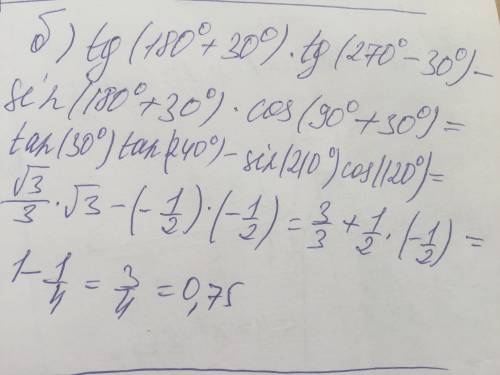 б) tg(180°+30°)·tg(270°-30°)-
sin(180°+30°)·cos(90°+30°)=
tan(30°)tan(240°)-sin(210°)cos(120°)=
√3/3·√3-(-1/2)·(-1/2)=3/3+1/2·(-1/2)=
1-1/4=3/4=0,75